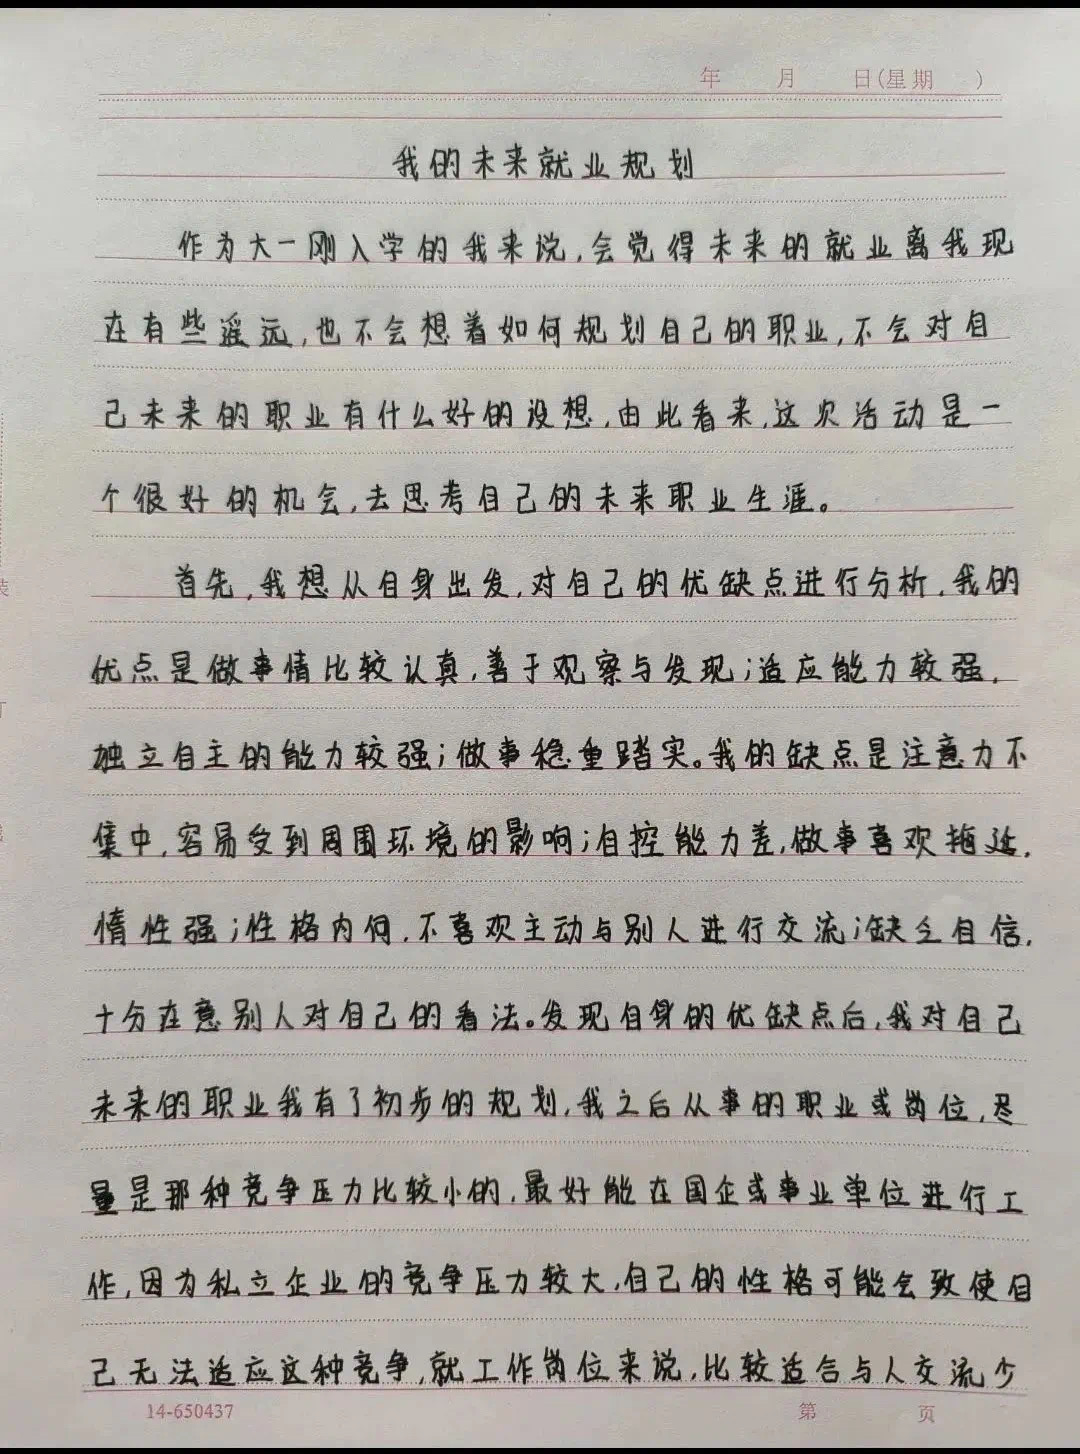 年 月 日(星期 )
我的未来就业规划
作为大一刚入学的我来说,会觉得未来的就业离我现
在有些遥远,也不会想着如何规划自己的职业,不会对自
己未来的职业有什么好的设想,由此看来,这次活动是一
个很好的机会,去思考自己的未来职业生涯。
首先,我想从自身出发,对自己的优缺点进行分析,我的
优点是做事情比较认真,善于观察与发现;适应能力较强,
独立自主的能力较强;做事稳重踏实。我的缺点是注意力不
集中,容易受到周围环境的影响;自控能力差,做事喜欢拖延,
惰性强;性格内向,不喜欢主动与别人进行交流;缺乏自信,
十分在意别人对自己的看法。发现自身的优缺点后,我对自己
未来的职业我有了初步的规划,我之后从事的职业或岗位,尽
量是那种竞争压力比较小的,最好能在国企或事业单位进行工
作,因为私立企业的竞争压力较大,自己的性格可能会致使自
己无法适应这种竞争,就工作岗位来说,比较适合与人交流少
14-650437 第 页